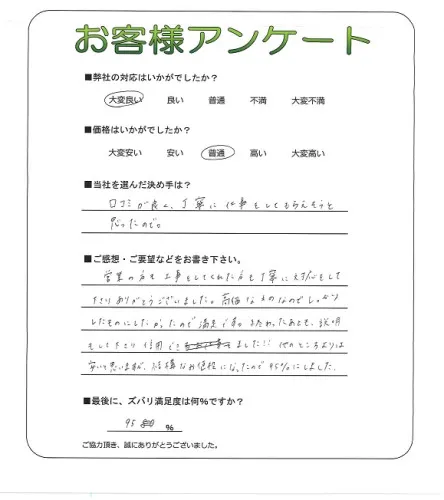 お客様アンケート
■弊社の対応はいかがでしたか?
大変良い 良い 普通 不満 大変不満
■価格はいかがでしたか?
大変安い 安い 普通 高い 大変高い
■当社を選んだ決め手は?
口コミが良く、丁寧に仕事をしてもらえそうと
思ったので。
■ご感想・ご要望などをお書き下さい。
営業の方も工事をしてくれた方も丁寧に対応をして
下さりありがとうございました。高価なものなのでしっかり
したものにしたかったので満足です。終わったあとも、説明
もして下さり信用できましました!! 他のところよりは
安いと思いますが、結構なお値段になったので95%にしました。
■最後に、ズバリ満足度は何%ですか?
95 %
ご協力頂き、誠にありがとうございました。